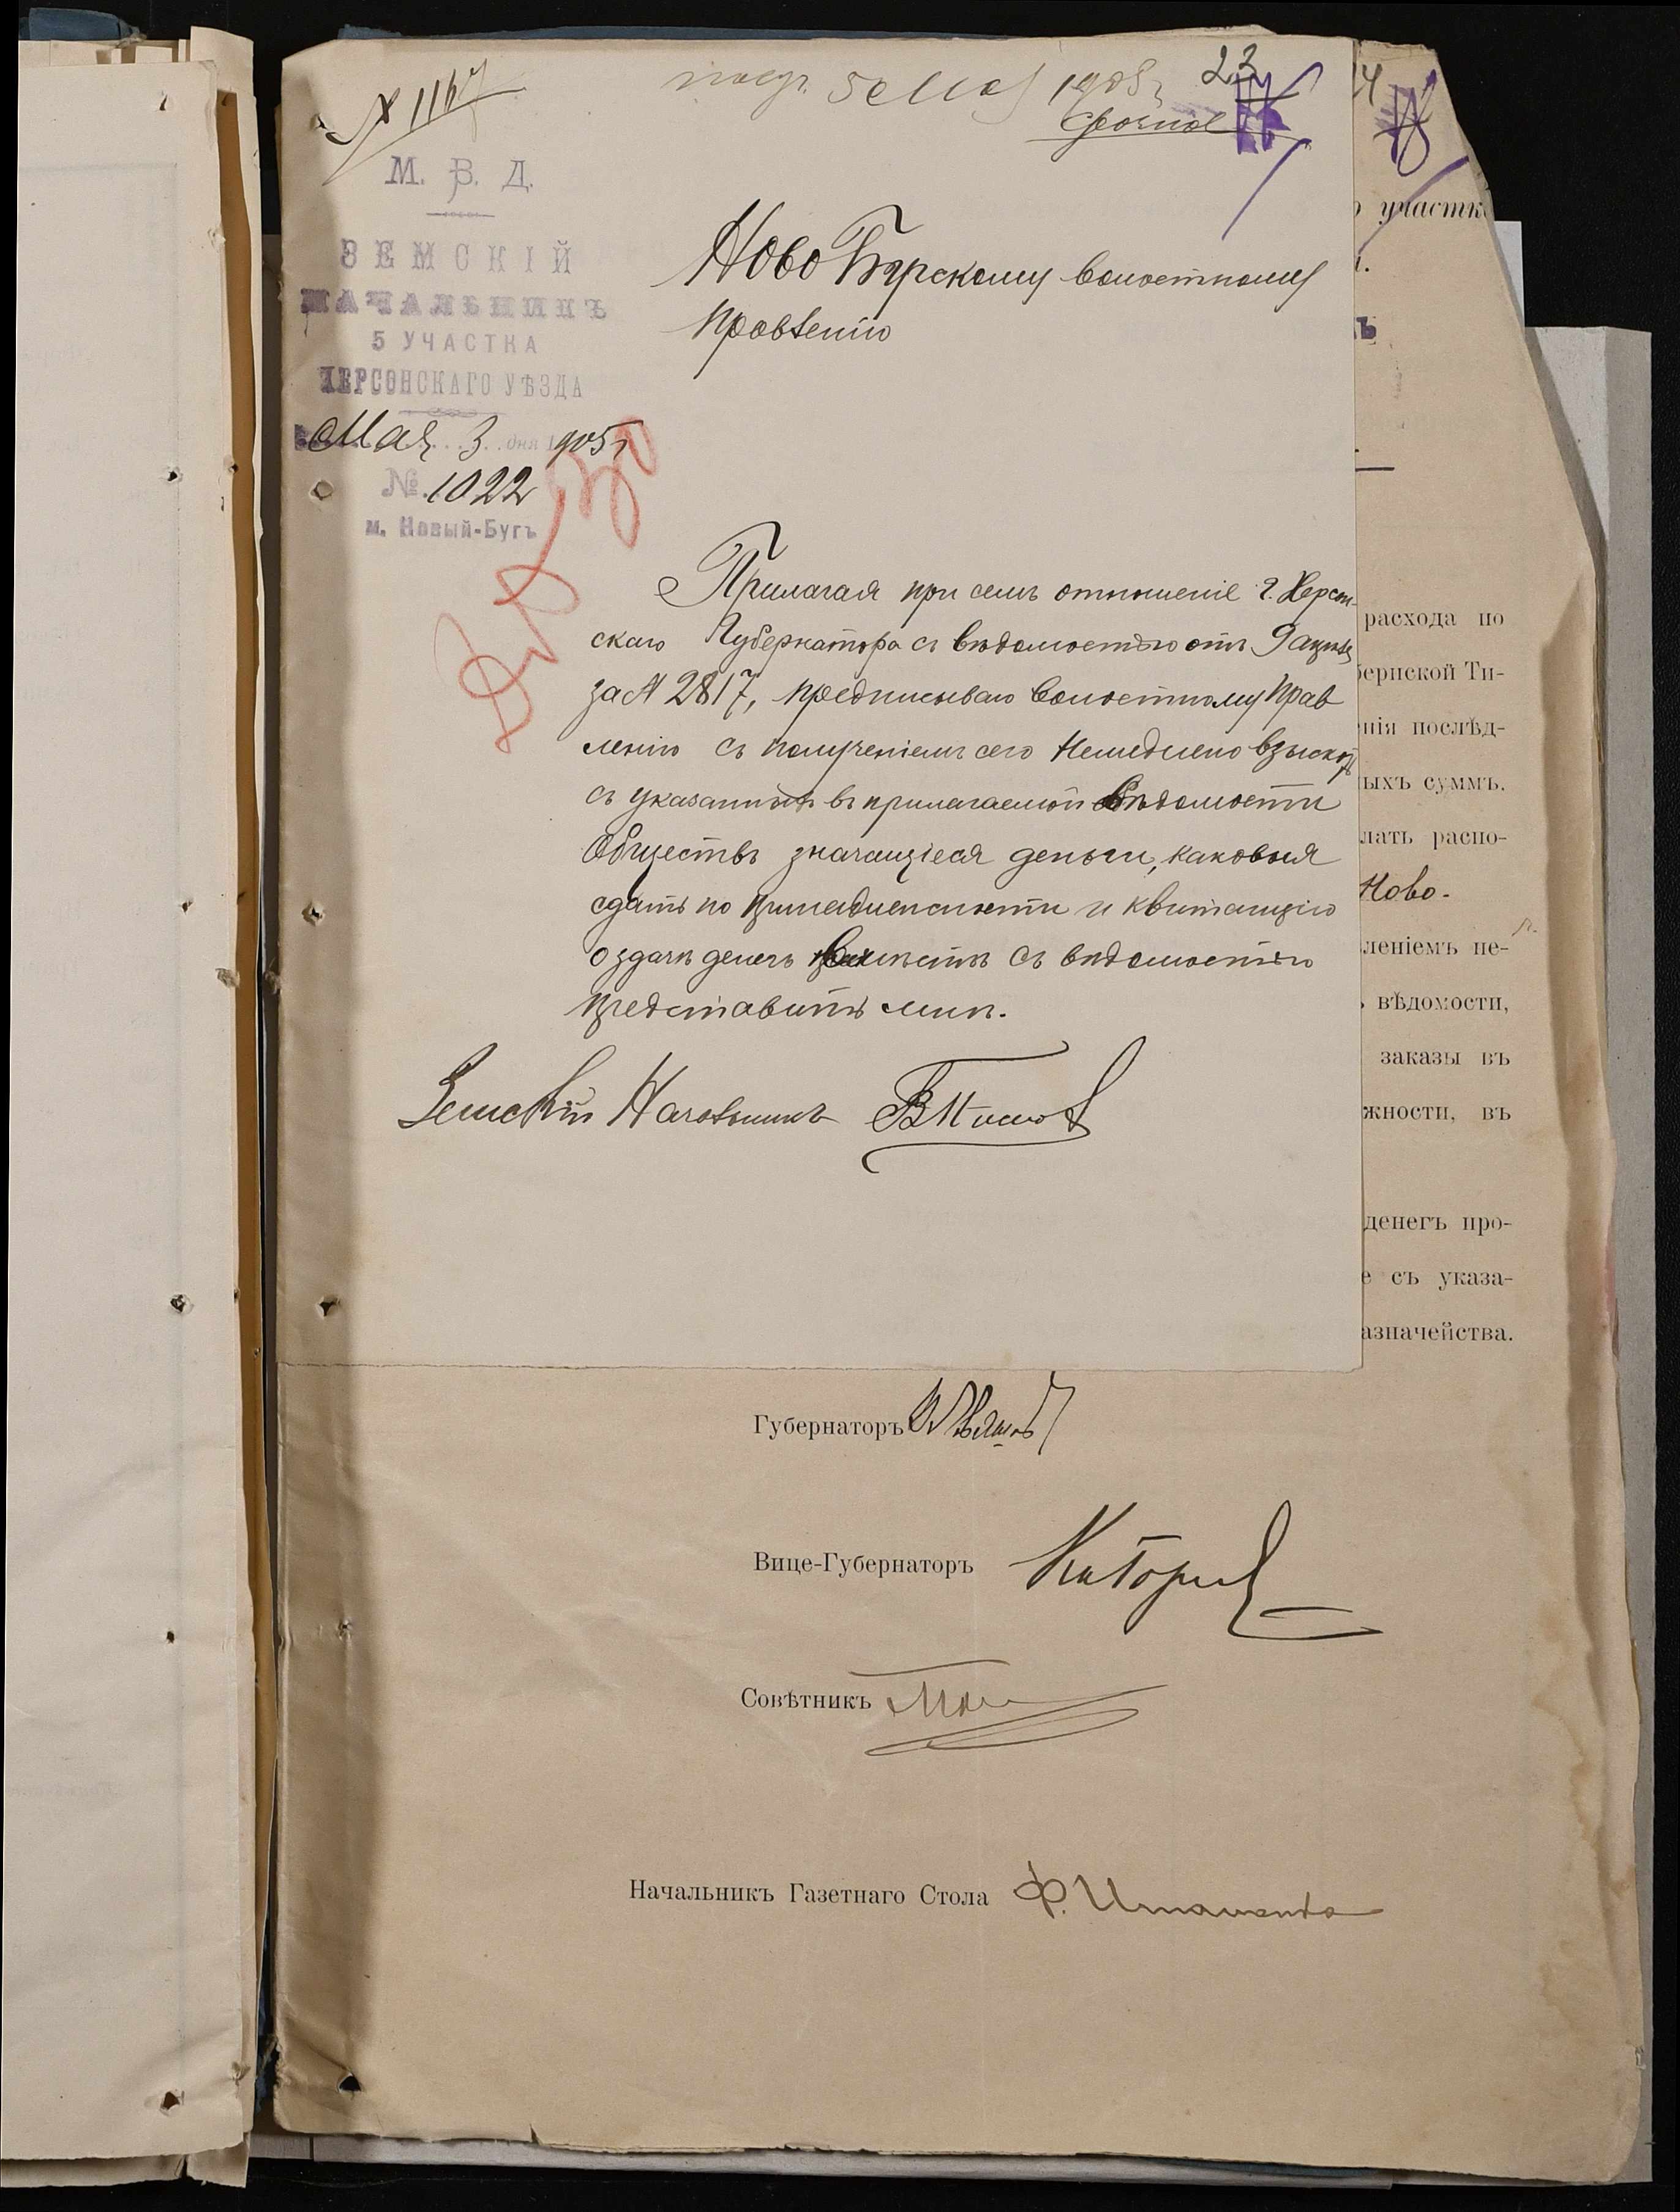 № 1167
пол. 5 Мая 1905 г.
23
Срочное
М. В. Д.
ЗЕМСКІЙ
НАЧАЛЬНИКЪ
5 УЧАСТКА
ХЕРСОНСКАГО УѢЗДА
Мая 3 дня 1905 г
№ 1022
м. Новый-Бугъ
Ново Бугскому волостному
Правленію
Прилагая при семъ отношеніе г. Херсон-
скаго Губернатора съ вѣдомостью отъ 9
за № 2817, предписываю Волостному Прав
ленію съ полученіемъ сего немедлено взыскать
съ указанныхъ въ прилагаемой вѣдомости
Обществъ значащіеся деньги, каковыя
сдать по принадлежности и квитанцію
о здачи денегъ вмѣстѣ съ вѣдомостью
представить мнѣ.
Земскій Начальникъ
участк
расхода по
бернской Ти-
нія послѣд-
ыхъ суммъ.
лать распо-
Ново-
леніемъ не-
вѣдомости,
заказы въ
жности, въ
денегъ про-
е съ указа-
азначейства.
Губернаторъ
Вице-Губернаторъ
Совѣтникъ
Начальникъ Газетнаго Стола Ф.